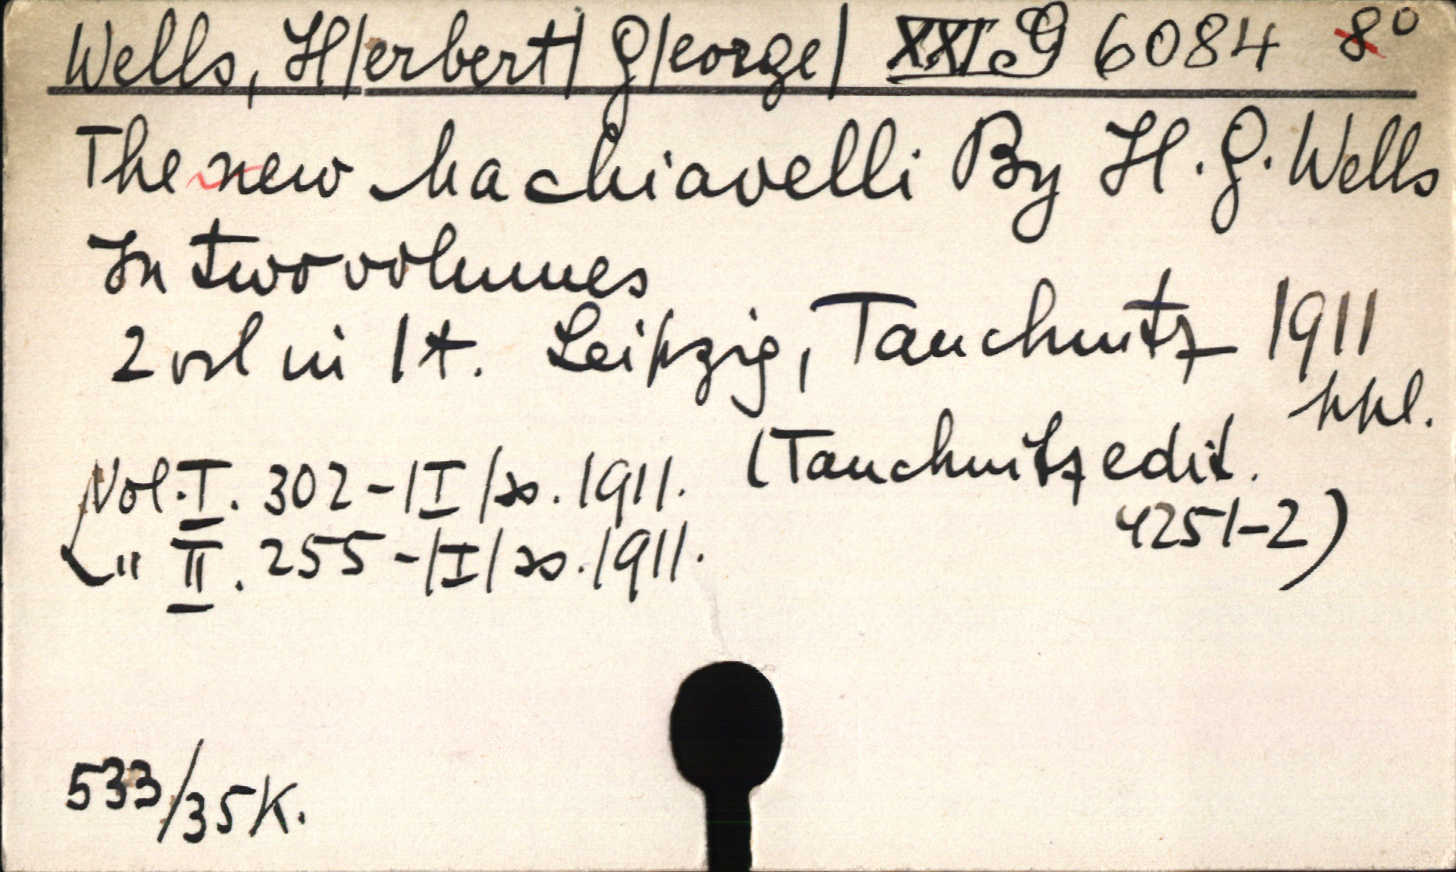 Wells, H/erbert/ G/eorge/ XXI.G 6084 8°
The new Machiavelli By H. G. Wells
In two volumes
2 vol in 1 t. Leipzig, Tauchnitz 1911
(Tauchnitz edit.
4251-2)
Vol. I. 302 - /I/ s. 1911.
" II. 255 - /I/ s. 1911.
533/35K.